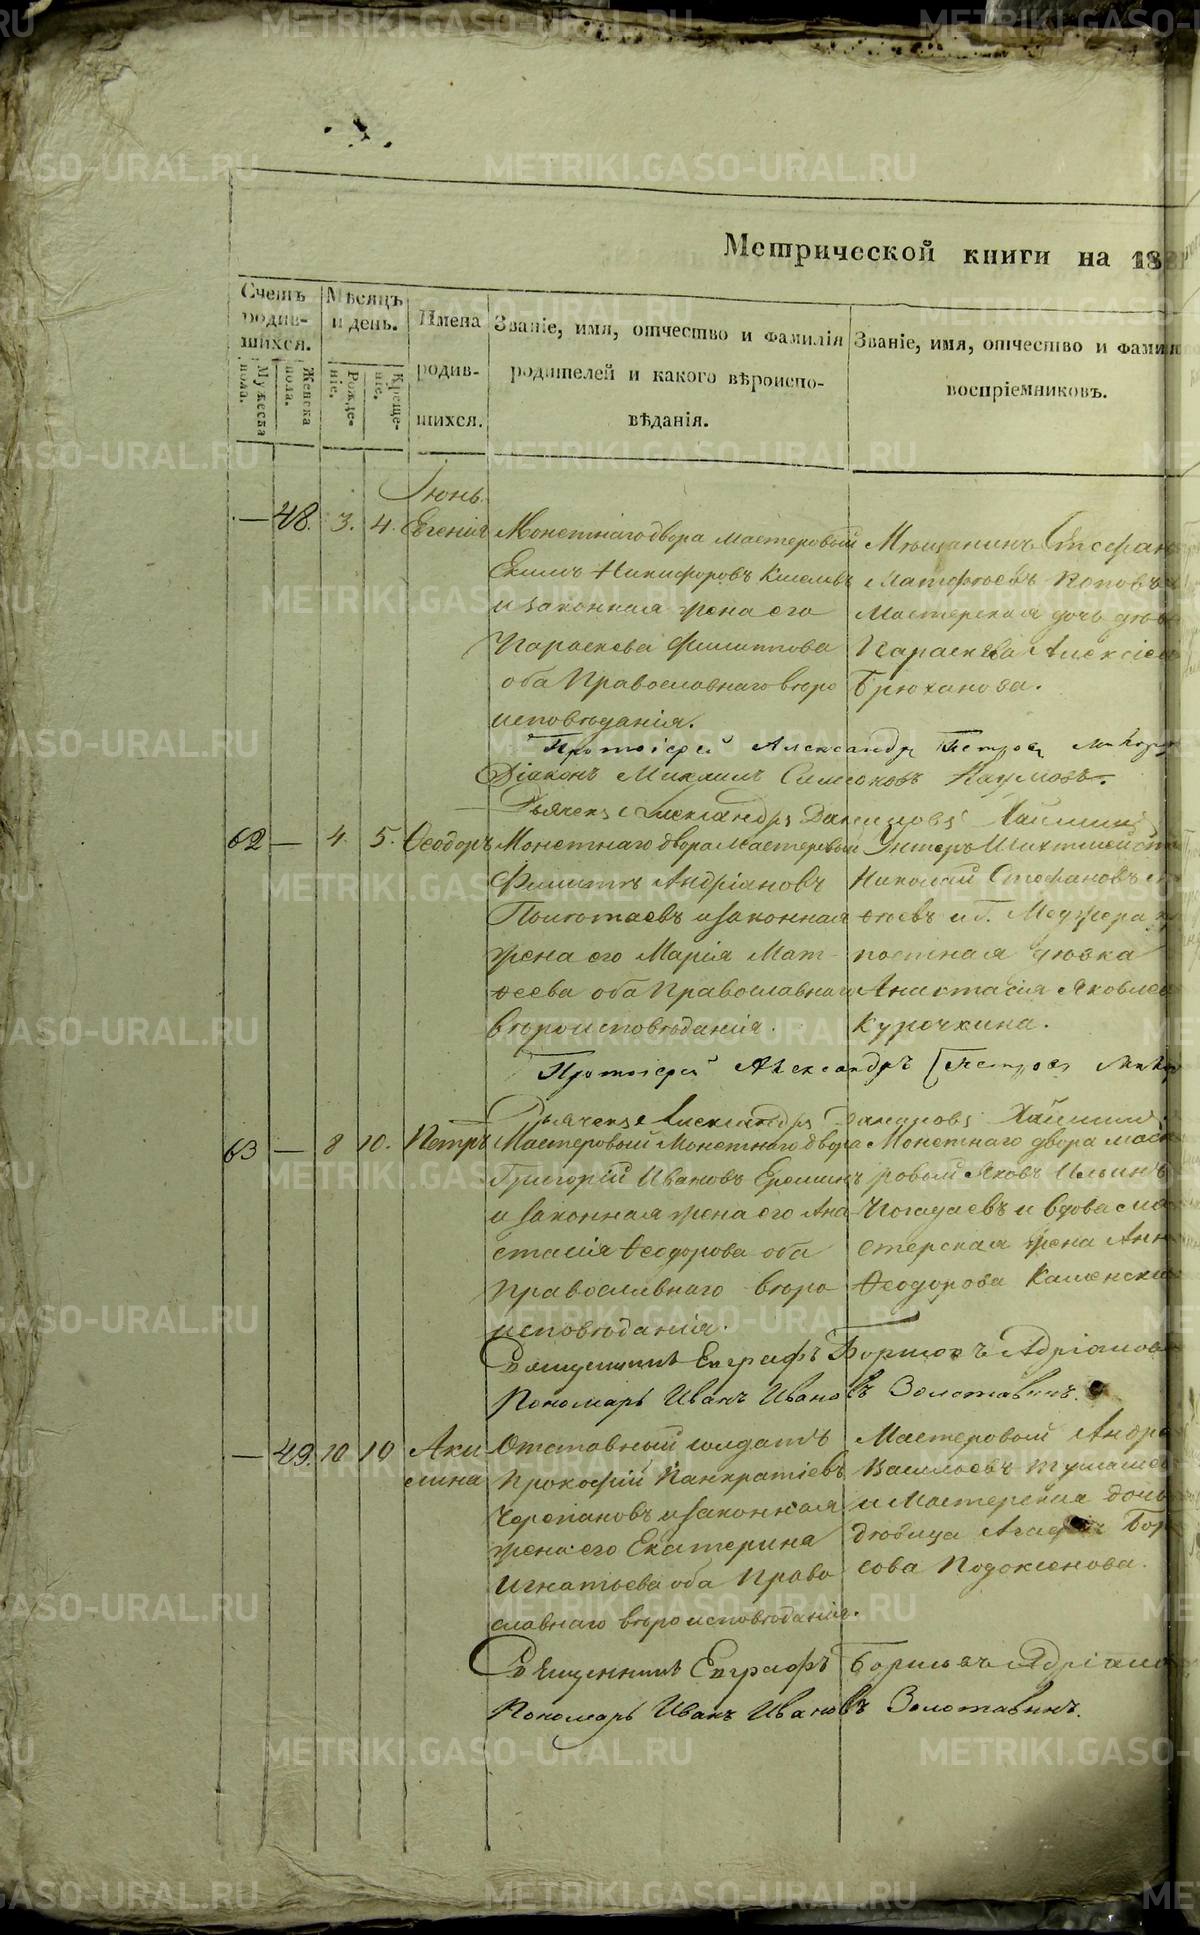 Метрической книги на 18
Счетъ родившихся.
Мужеска пола.
Женска пола.
Мѣсяцъ и день.
Рожденіе.
Крещеніе.
Имена родившихся.
Званіе, имя, отчество и фамилія
родителей и какого вѣроиспо-
вѣданія.
Званіе, имя, отчество и фамил
воспріемниковъ.
Іюнь.
— 48. 3. 4. Евгенія
Монетнаго двора мастеровый
Екимъ Никифоровъ
и законная жена его
Параскева Филиппова
оба Православнаго вѣро
исповѣданія.
Мѣщанинъ Стефанъ
Матфѣевъ Поповъ
Мастерская дочь дѣв
Параскева Алексіев
Брюханова.
Протоіерей Александр Петров
Діаконъ Михаилъ Симеоновъ Наумовъ.
Дьячекъ Александръ Даниловъ
62 — 4. 5. Ѳеодоръ
Монетнаго двора мастеровый
Филиппъ Андріановъ
и законная
жена его Марія Мат-
ѳеева оба Православнаго
вѣроисповѣданія.
Унтеръ Шихтмейст
Николай Стефановъ
ѳѣевъ и б.
постная дѣвка
Анастасія Яковлев
Курочкина.
Протоіерей Александръ Петров
Дьячекъ Александръ Даниловъ
63 — 8 10. Петръ
Мастеровый Монетнаго двора
Григорій Ивановъ Ереминъ
и законная жена его Ана-
стасія Ѳеодорова оба
Православнаго вѣро
исповѣданія.
Монетнаго двора масте
ровый Яковъ Ильинъ
Чогадаевъ и вдова ма
стерская жена Анн
Ѳеодорова Каменска
Священникъ Евграфъ Борисовъ Адріанов
Пономарь Иванъ Ивановъ Золотавинъ.
— 49. 10 10 Аки
лина
Отставный солдатъ
Прокофій Панкратіевъ
Черепановъ и законная
жена его Екатерина
Игнатьева оба Право
славнаго вѣроисповѣданія.
Мастеровый Андре
Васильевъ
и Мастерская дочь
дѣвица Агафія Бор
сова Подоксенова.
Священникъ Евграфъ Борисовъ Адріано
Пономарь Иванъ Ивановъ Золотавинъ.
METRIKI.GASO-URAL.RU